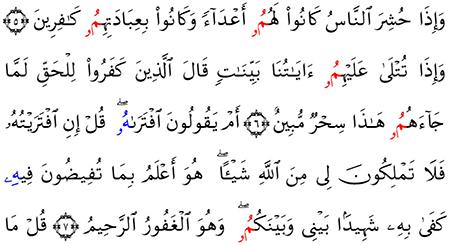 وَإِذَا حُشِرَ ٱلنَّاسُ كَانُوا۟ لَهُمُۥ أَعْدَآءًۭ وَكَانُوا۟ بِعِبَادَتِهِمُۥ كَـٰفِرِينَ ۝٥
وَإِذَا تُتْلَىٰ عَلَيْهِمُۥ ءَايَـٰتُنَا بَيِّنَـٰتٍۢ قَالَ ٱلَّذِينَ كَفَرُوا۟ لِلْحَقِّ لَمَّا
جَآءَهُمُۥ هَـٰذَا سِحْرٌۭ مُّبِينٌ ۝٦ أَمْ يَقُولُونَ ٱفْتَرَىٰهُۥ ۖ قُلْ إِنِ ٱفْتَرَيْتُهُۥ
فَلَا تَمْلِكُونَ لِى مِنَ ٱللَّهِ شَيْـًٔا ۖ هُوَ أَعْلَمُ بِمَا تُفِيضُونَ فِيهِۦ
كَفَىٰ بِهِۦ شَهِيدًۢا بَيْنِى وَبَيْنَكُمُۥ ۖ وَهُوَ ٱلْغَفُورُ ٱلرَّحِيمُ ۝٧ قُلْ مَا